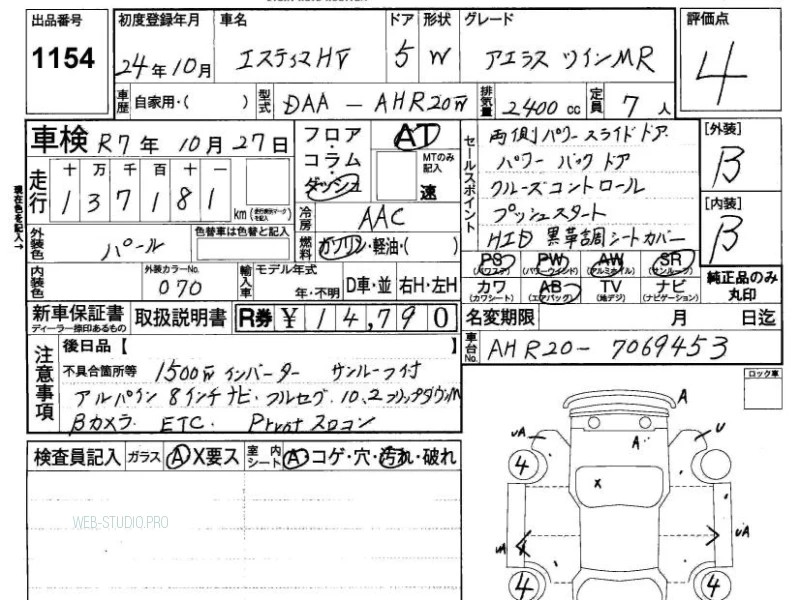 出品番号 初度登録年月 車名 ドア 形状 グレード 評価点
1154 24年10月 エスティマHV 5 W アエラス ツインMR 4
車歴 自家用・( ) 型式 DAA - AHR20W 排気量 2400 cc 定員 7 人
車検 R7年 10月27日 フロア・コラム・ダッシュ AT MTのみ記入 速
セールスポイント 両側パワースライドドア [外装] B
パワーバックドア
クルーズコントロール [内装] B
プッシュスタート
HID 黒革調シートカバー
現在色を記入→
走行 十 万 千 百 十 一
137181 km (走行表示マーク)記入
冷房 AAC
外装色 パール 色替車は色替と記入 燃料 ガソリン・軽油・( )
PS (パワステ) PW (パワーウインド) AW (アルミホイル) SR (サンルーフ)
カワ (カワシート) AB (エアバッグ) TV (地デジ) ナビ (ナビゲーション) 純正品のみ丸印
内装色 外装カラーNo. 070 輸入車 モデル年式 年・不明 D車・並 右H・左H
新車保証書 ディーラー捺印あるもの 取扱説明書 R券 ¥ 14,790 名変期限 月 日迄
車台No. AHR20-7069453
注意事項 後日品【 】
不具合箇所等 1500W インバーター サンルーフ付
アルパイン 8インチナビ・フルセグ・10.2フリップダウンM
Bカメラ ETC.
ロック車
検査員記入 ガラス A X要ス 室内シート A コゲ・穴・汚れ・破れ
A
UA A U
4
X
UA UA
4 4
WEB-STUDIO.PRO